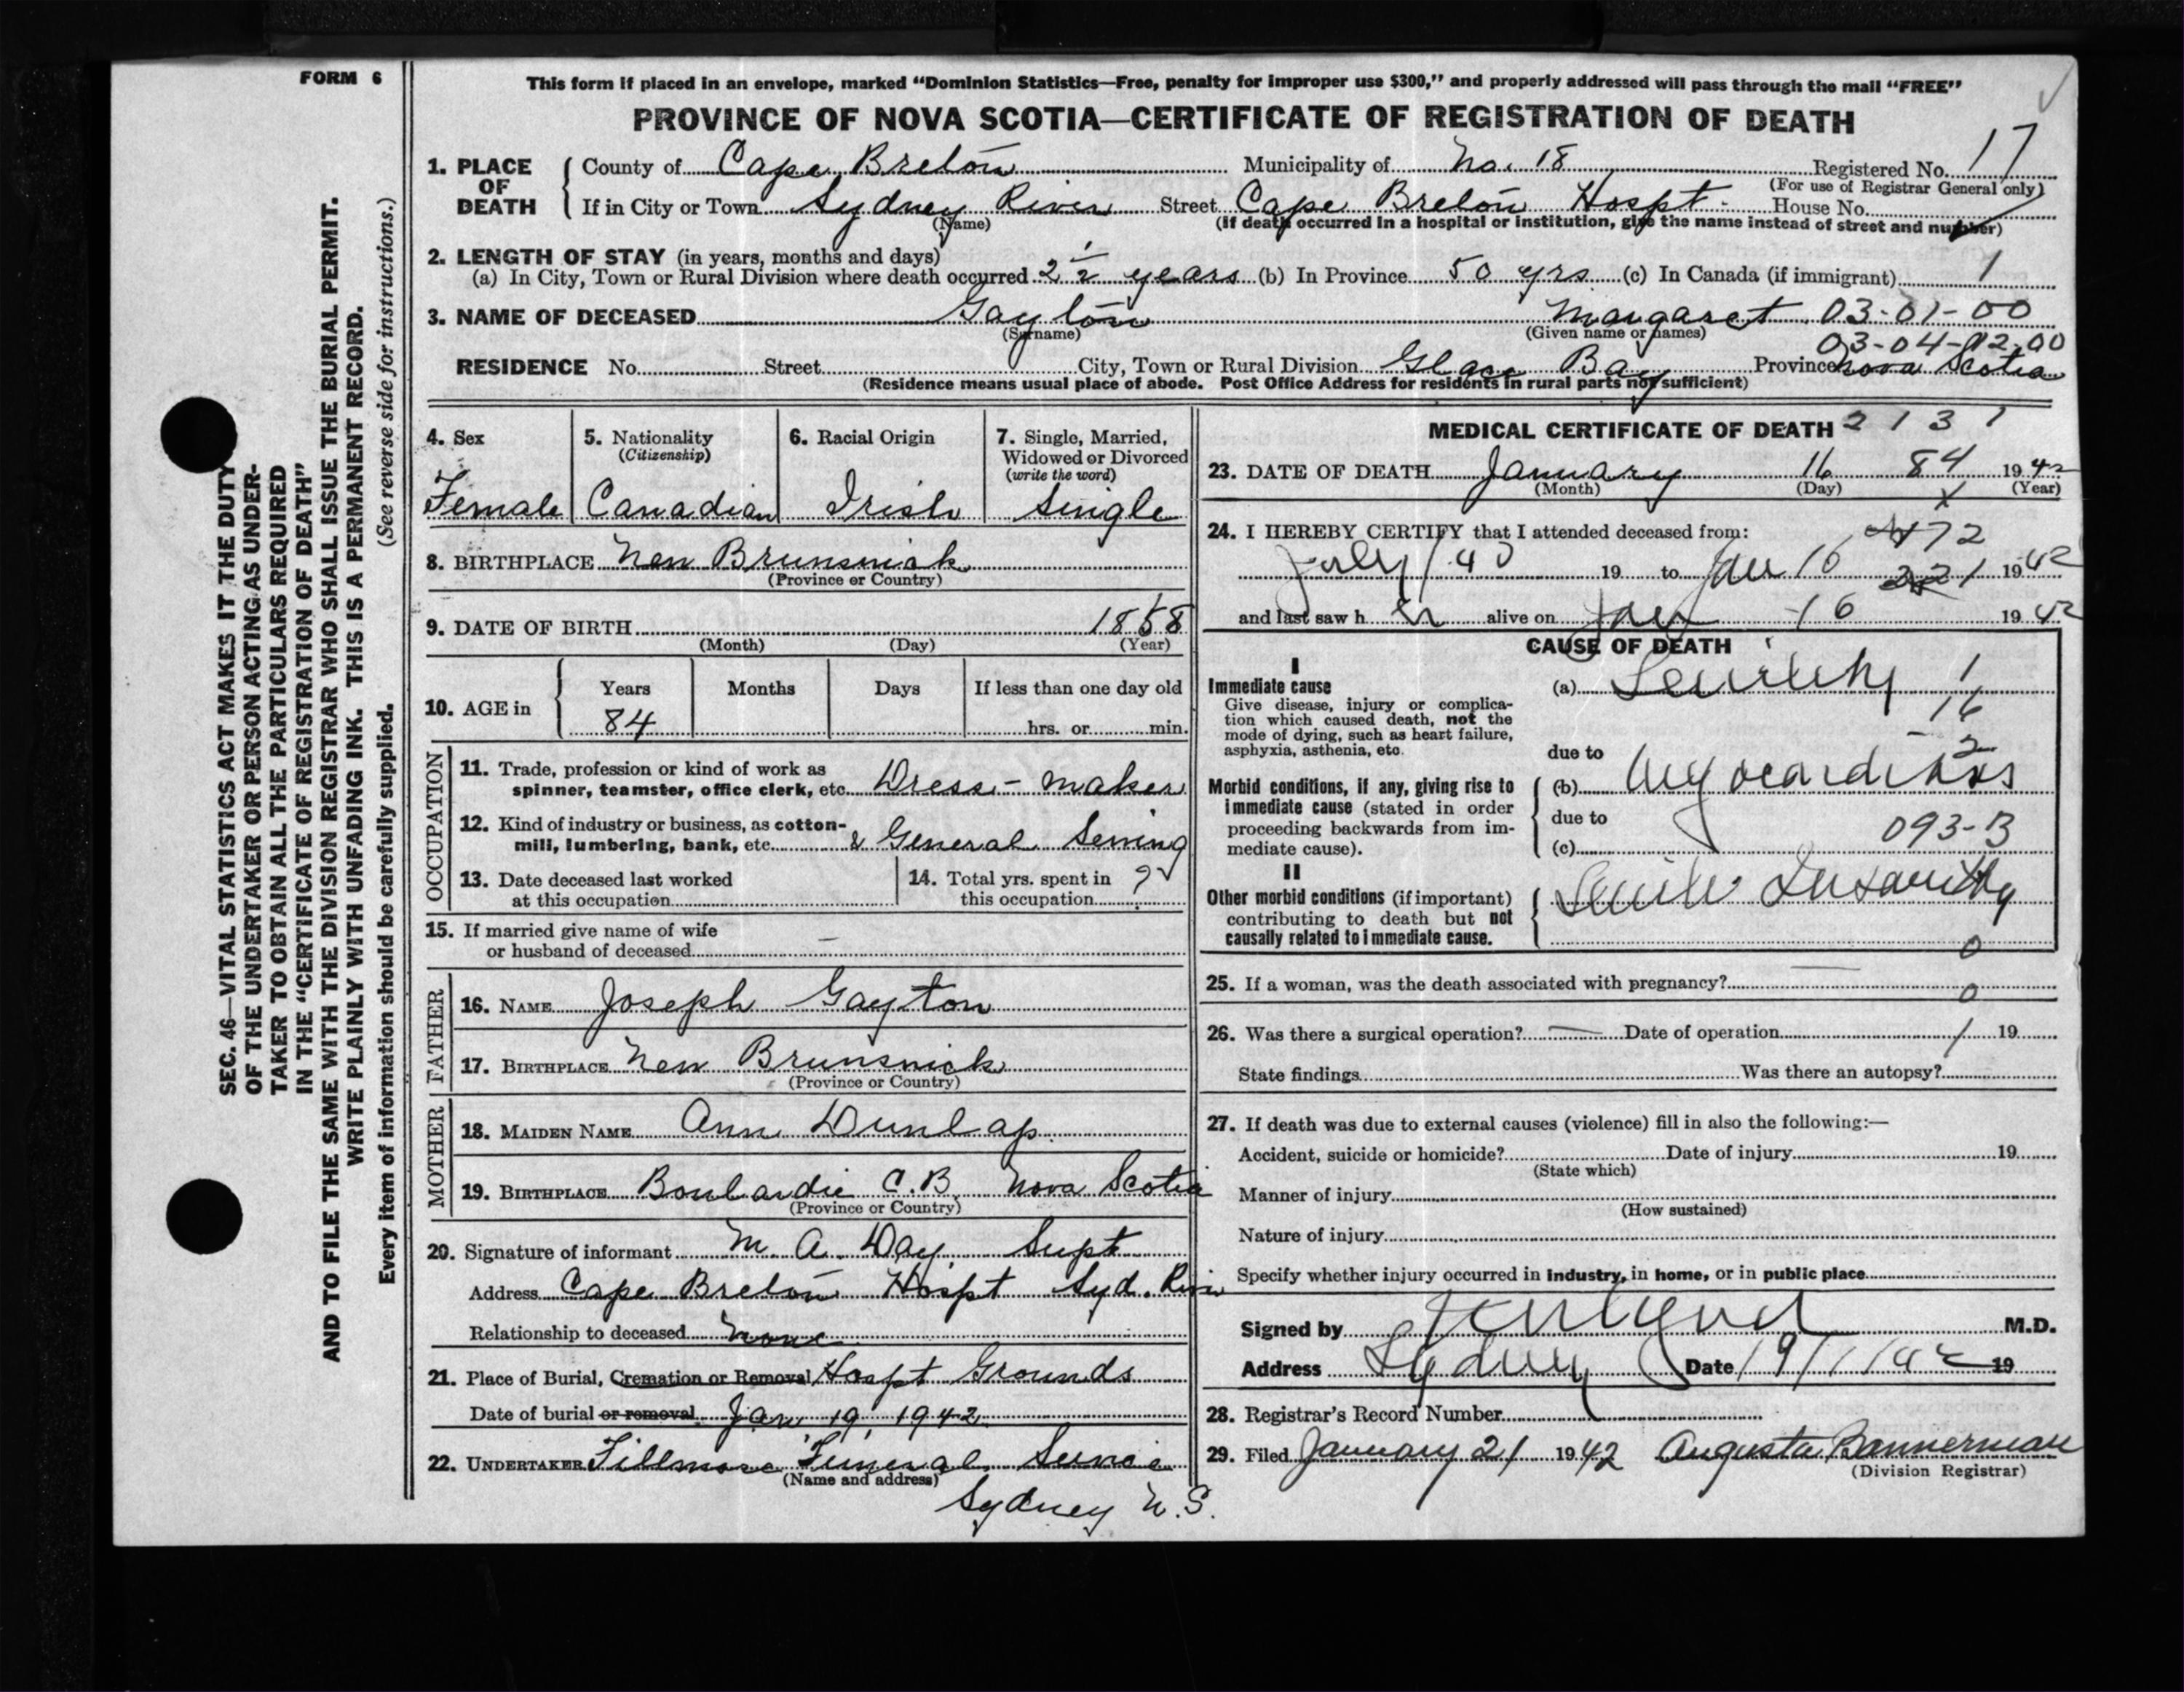 FORM 6
This form if placed in an envelope, marked “Dominion Statistics—Free, penalty for improper use $300,” and properly addressed will pass through the mail “FREE”
PROVINCE OF NOVA SCOTIA—CERTIFICATE OF REGISTRATION OF DEATH
SEC. 46—VITAL STATISTICS ACT MAKES IT THE DUTY
OF THE UNDERTAKER OR PERSON ACTING AS UNDER-
TAKER TO OBTAIN ALL THE PARTICULARS REQUIRED
IN THE “CERTIFICATE OF REGISTRATION OF DEATH”
AND TO FILE THE SAME WITH THE DIVISION REGISTRAR WHO SHALL ISSUE THE BURIAL PERMIT.
WRITE PLAINLY WITH UNFADING INK. THIS IS A PERMANENT RECORD.
Every item of information should be carefully supplied. (See reverse side for instructions.)
1. PLACE OF DEATH
County of Cape Breton Municipality of No. 18 Registered No. 17
(For use of Registrar General only)
If in City or Town Sydney River Street Cape Breton Hospt. House No.
(Name) (If death occurred in a hospital or institution, give the name instead of street and number)
2. LENGTH OF STAY (in years, months and days)
(a) In City, Town or Rural Division where death occurred 2 1/2 years (b) In Province 50 yrs (c) In Canada (if immigrant) 1
3. NAME OF DECEASED Gayton Margaret 03-01-00
(Surname) (Given name or names)
03-04-02-00
RESIDENCE No. Street City, Town or Rural Division Glace Bay Province Nova Scotia
(Residence means usual place of abode. Post Office Address for residents in rural parts not sufficient)
4. Sex
Female
5. Nationality
(Citizenship)
Canadian
6. Racial Origin
Irish
7. Single, Married,
Widowed or Divorced
(write the word)
Single
8. BIRTHPLACE New Brunswick
(Province or Country)
9. DATE OF BIRTH 1858
(Month) (Day) (Year)
10. AGE in
Years Months Days If less than one day old
84 hrs. or min.
OCCUPATION
11. Trade, profession or kind of work as
spinner, teamster, office clerk, etc. Dress-maker
12. Kind of industry or business, as cotton-
mill, lumbering, bank, etc. & General Sewing
13. Date deceased last worked
at this occupation
14. Total yrs. spent in
this occupation ?
15. If married give name of wife
or husband of deceased —
FATHER
16. NAME Joseph Gayton
17. BIRTHPLACE New Brunswick
(Province or Country)
MOTHER
18. MAIDEN NAME Ann Dunlap
19. BIRTHPLACE Boulardie C.B. Nova Scotia
(Province or Country)
20. Signature of informant M. A. Day Supt
Address Cape Breton Hospt Syd. River
Relationship to deceased None
21. Place of Burial, Cremation or Removal Hospt Grounds
Date of burial or removal Jan, 19, 1942
22. UNDERTAKER Fillmore Funeral Service
(Name and address)
Sydney N.S.
MEDICAL CERTIFICATE OF DEATH 2 1 3 1
23. DATE OF DEATH January 16 84 1942
(Month) (Day) (Year)
x
24. I HEREBY CERTIFY that I attended deceased from:
472
July 1 40 19 to Jan 16 221 1942
and last saw her alive on Jan 16 1942
CAUSE OF DEATH
I
Immediate cause
Give disease, injury or complica-
tion which caused death, not the
mode of dying, such as heart failure,
asphyxia, asthenia, etc.
(a) Senility 1
16
due to 2
Morbid conditions, if any, giving rise to
immediate cause (stated in order
proceeding backwards from im-
mediate cause).
(b) Myocarditis
due to
093-B
(c)
II
Other morbid conditions (if important)
contributing to death but not
causally related to immediate cause.
Senile Insanity
0
25. If a woman, was the death associated with pregnancy? —
0
26. Was there a surgical operation? — Date of operation / 19
State findings Was there an autopsy?
27. If death was due to external causes (violence) fill in also the following:—
Accident, suicide or homicide? Date of injury 19
(State which)
Manner of injury
(How sustained)
Nature of injury
Specify whether injury occurred in industry, in home, or in public place
Signed by M.D.
Address Sydney Date 19/1/42 19
28. Registrar's Record Number
29. Filed January 21 1942 Augusta Bannerman
(Division Registrar)